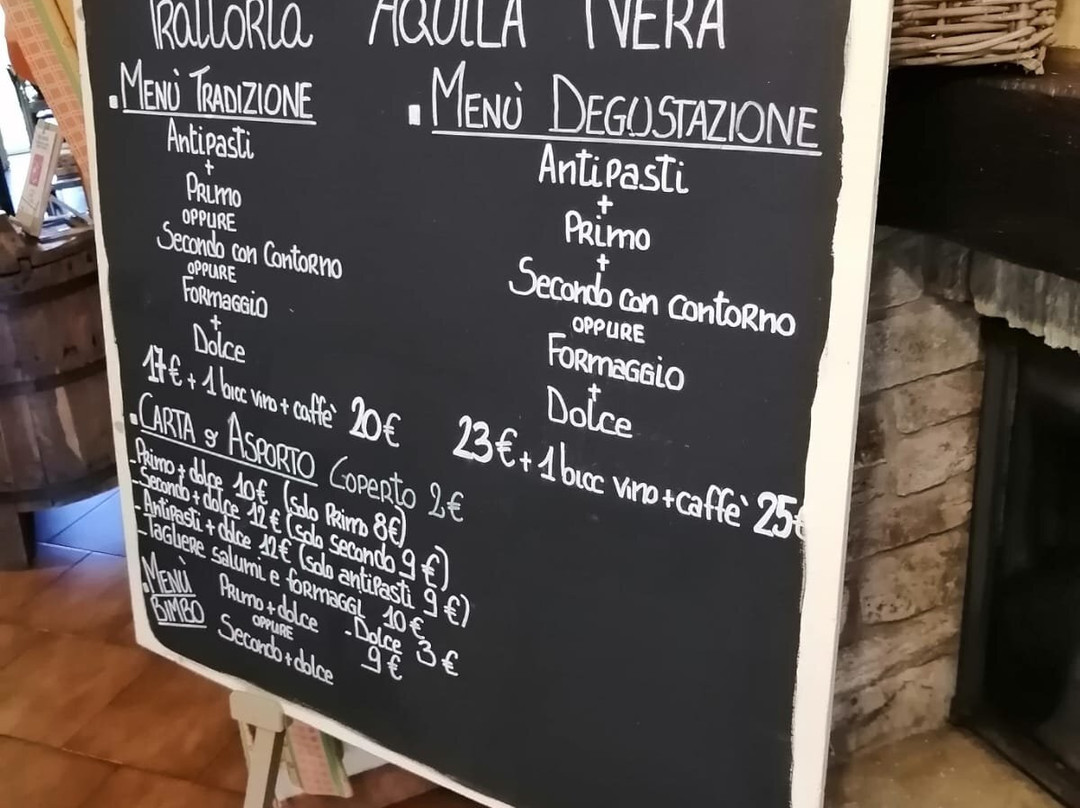 Trattoria AQUILA NERA
MENÙ TRADIZIONE
Antipasti
+
PRIMO
OPPURE
Secondo con Contorno
OPPURE
FORMAGGIO
+
Dolce
17€ + 1 bicc vino + caffè 20€
MENÙ DEGUSTAZIONE
Antipasti
+
PRimo
+
Secondo con contoRno
OPPURE
FORMAGGiO
+
Dolce
23€ + 1 bicc vino + caffè 25€
CARTA & ASPORTO Coperto 2€
- Primo + dolce 10€ (solo Primo 8€)
- Secondo + dolce 12€ (solo secondo 9€)
- Antipasti + dolce 12€ (solo antipasti 9€)
- Tagliere salumi e formaggi 10€
- Dolce 3€
MENÙ BIMBO
PRimo + dolce
OPPURE 9€
Secondo + dolce